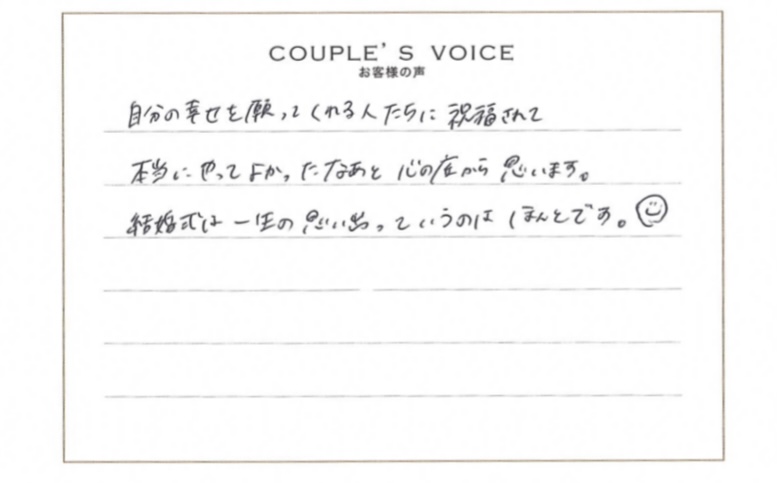 COUPLE'S VOICE
お客様の声
自分の幸せを願ってくれる人たちに祝福されて
本当にやってよかったなあと心の底から思います。
結婚式は一生の思い出っていうのはほんとです。